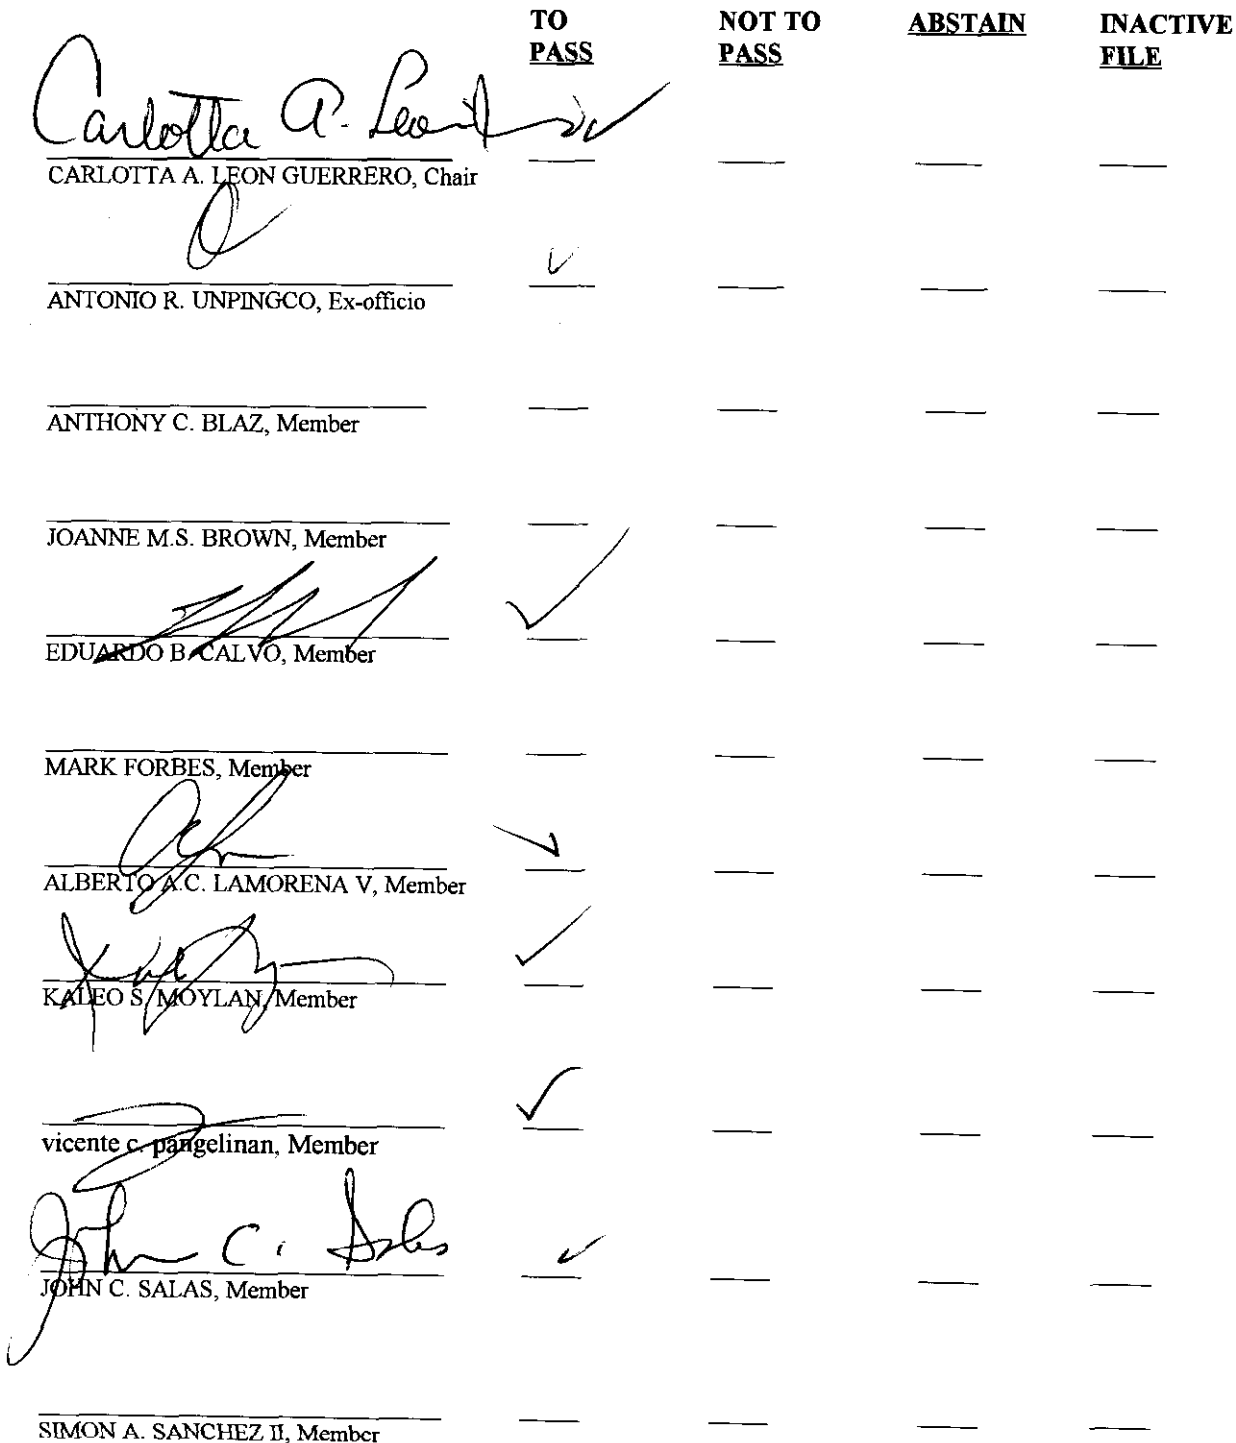 TO PASS NOT TO PASS ABSTAIN INACTIVE FILE
Carlotta A. Leon
CARLOTTA A. LEON GUERRERO, Chair
ANTONIO R. UNPINGCO, Ex-officio
ANTHONY C. BLAZ, Member
JOANNE M.S. BROWN, Member
EDUARDO B. CALVO, Member
MARK FORBES, Member
ALBERTO A.C. LAMORENA V, Member
KALEO S. MOYLAN, Member
vicente c. pangelinan, Member
John C. Salas
JOHN C. SALAS, Member
SIMON A. SANCHEZ II, Member